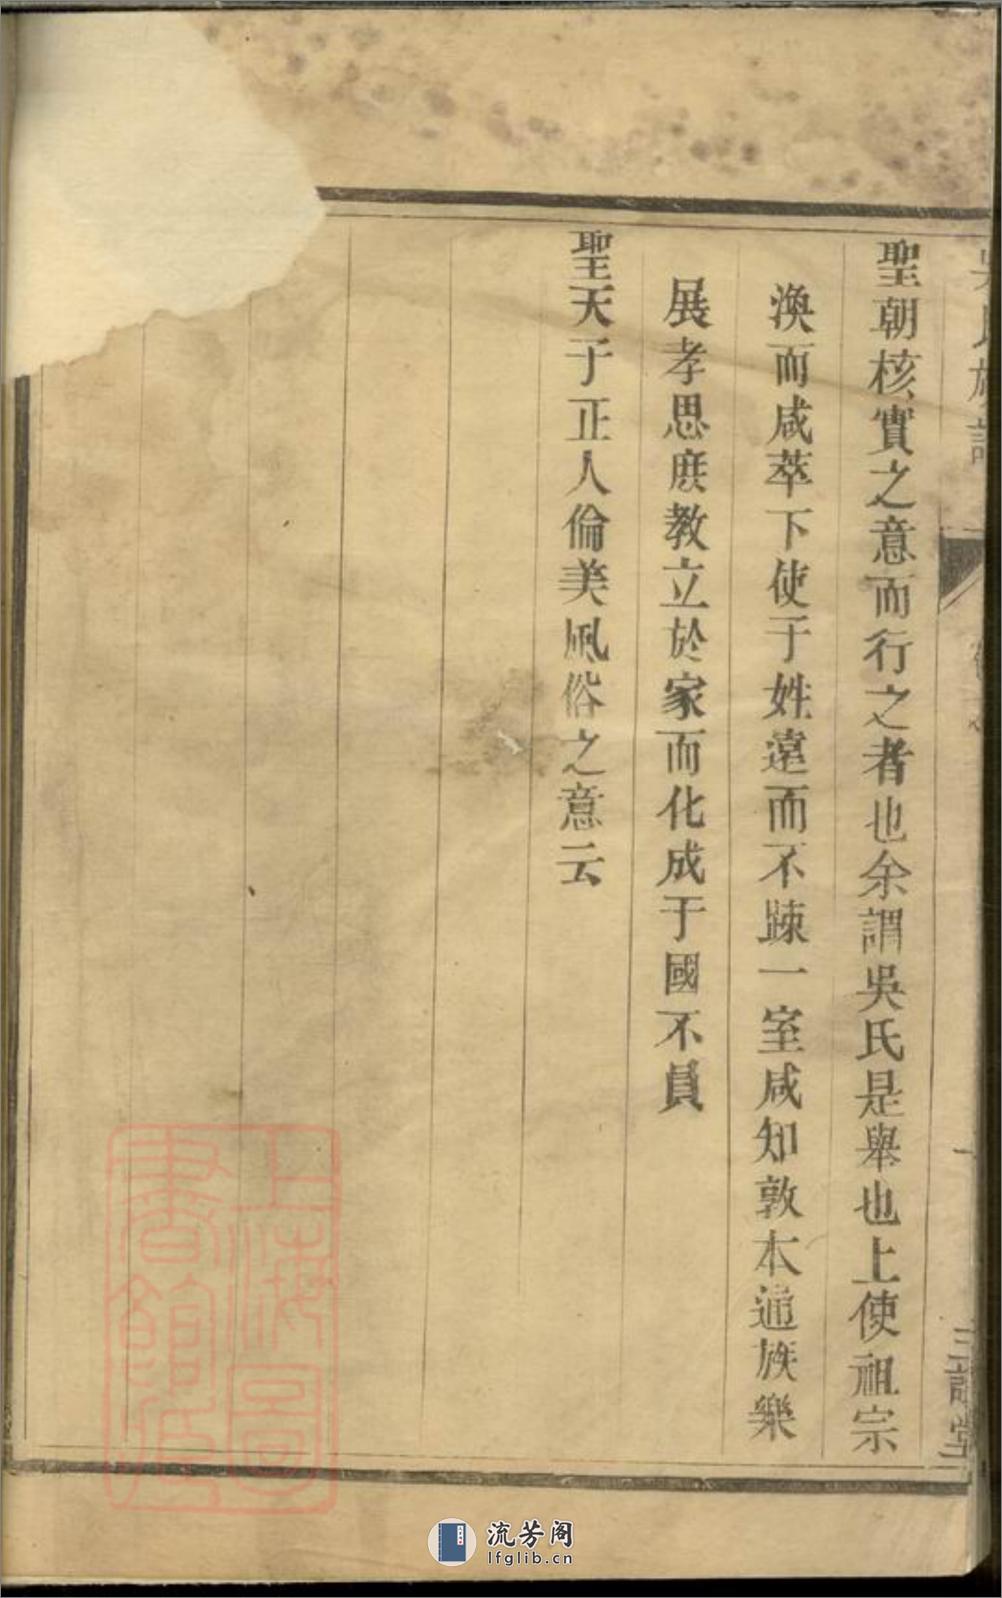 聖朝核實之意而行之者也余謂吳氏是舉也上使祖宗
渙而咸萃下使于姓遠而不踈一室咸知敦本通族樂
展孝思庻教立於家而化成于國不負
聖天子正人倫美風俗之意云
吳氏族譜
三讓堂
上海圖
書館藏
流芳阁
lfglib.cn